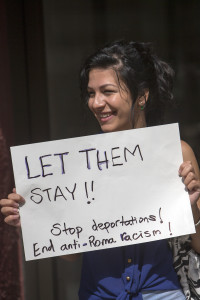 LET THEM
STAY!!
Stop deportations!
End anti-Roma racism!